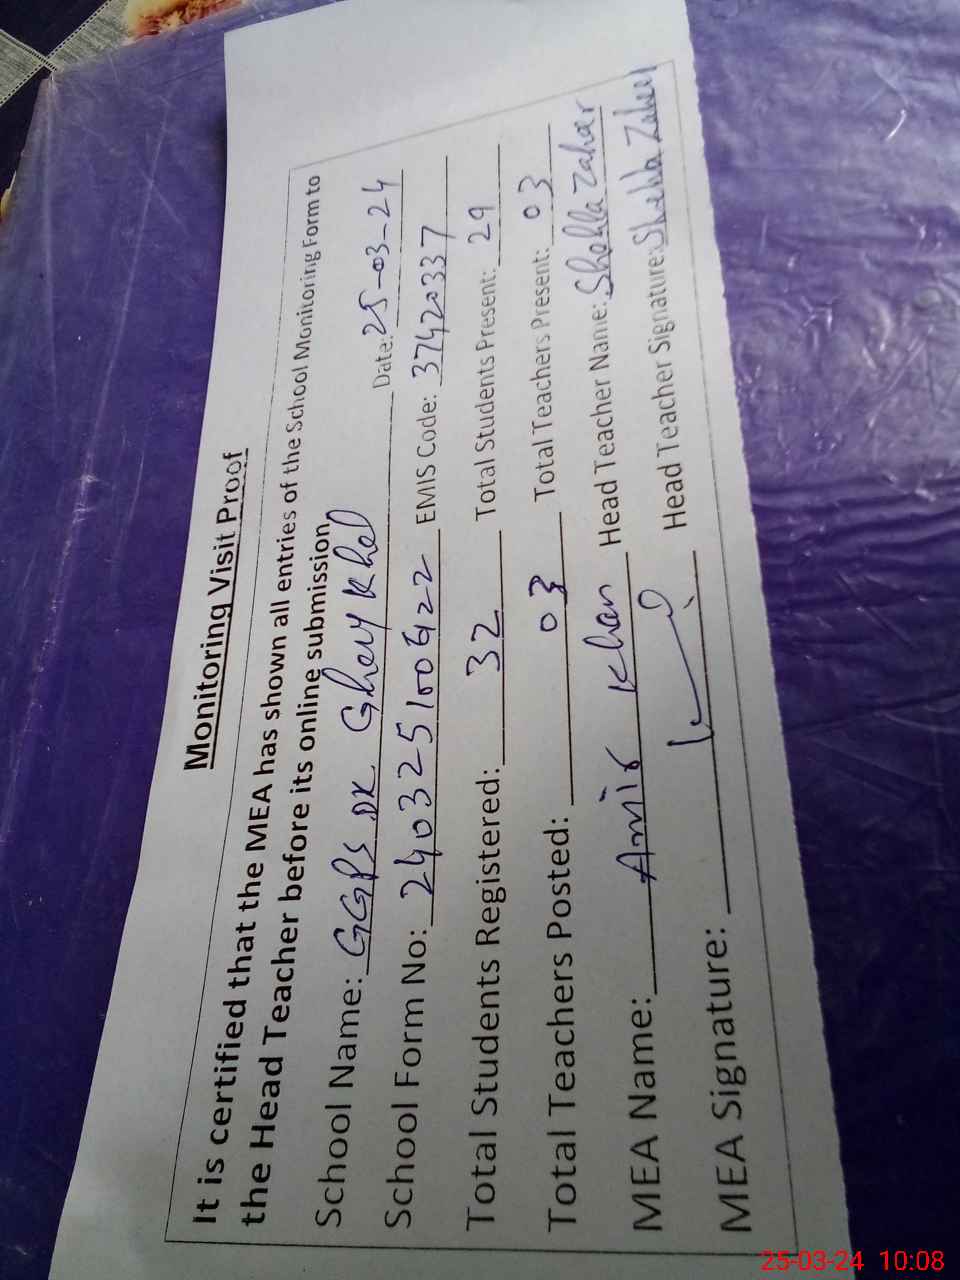 Monitoring Visit Proof
It is certified that the MEA has shown all entries of the School Monitoring Form to
the Head Teacher before its online submission.
School Name: GGPS DK Ghery Khel Date: 25-03-24
School Form No: 240325100622 EMIS Code: 37420337
Total Students Registered: 32 Total Students Present: 29
Total Teachers Posted: 03 Total Teachers Present: 03
MEA Name: Amir Khan Head Teacher Name: Shehla Zaheer
MEA Signature: Head Teacher Signature: Shehla Zaheer
25-03-24 10:08